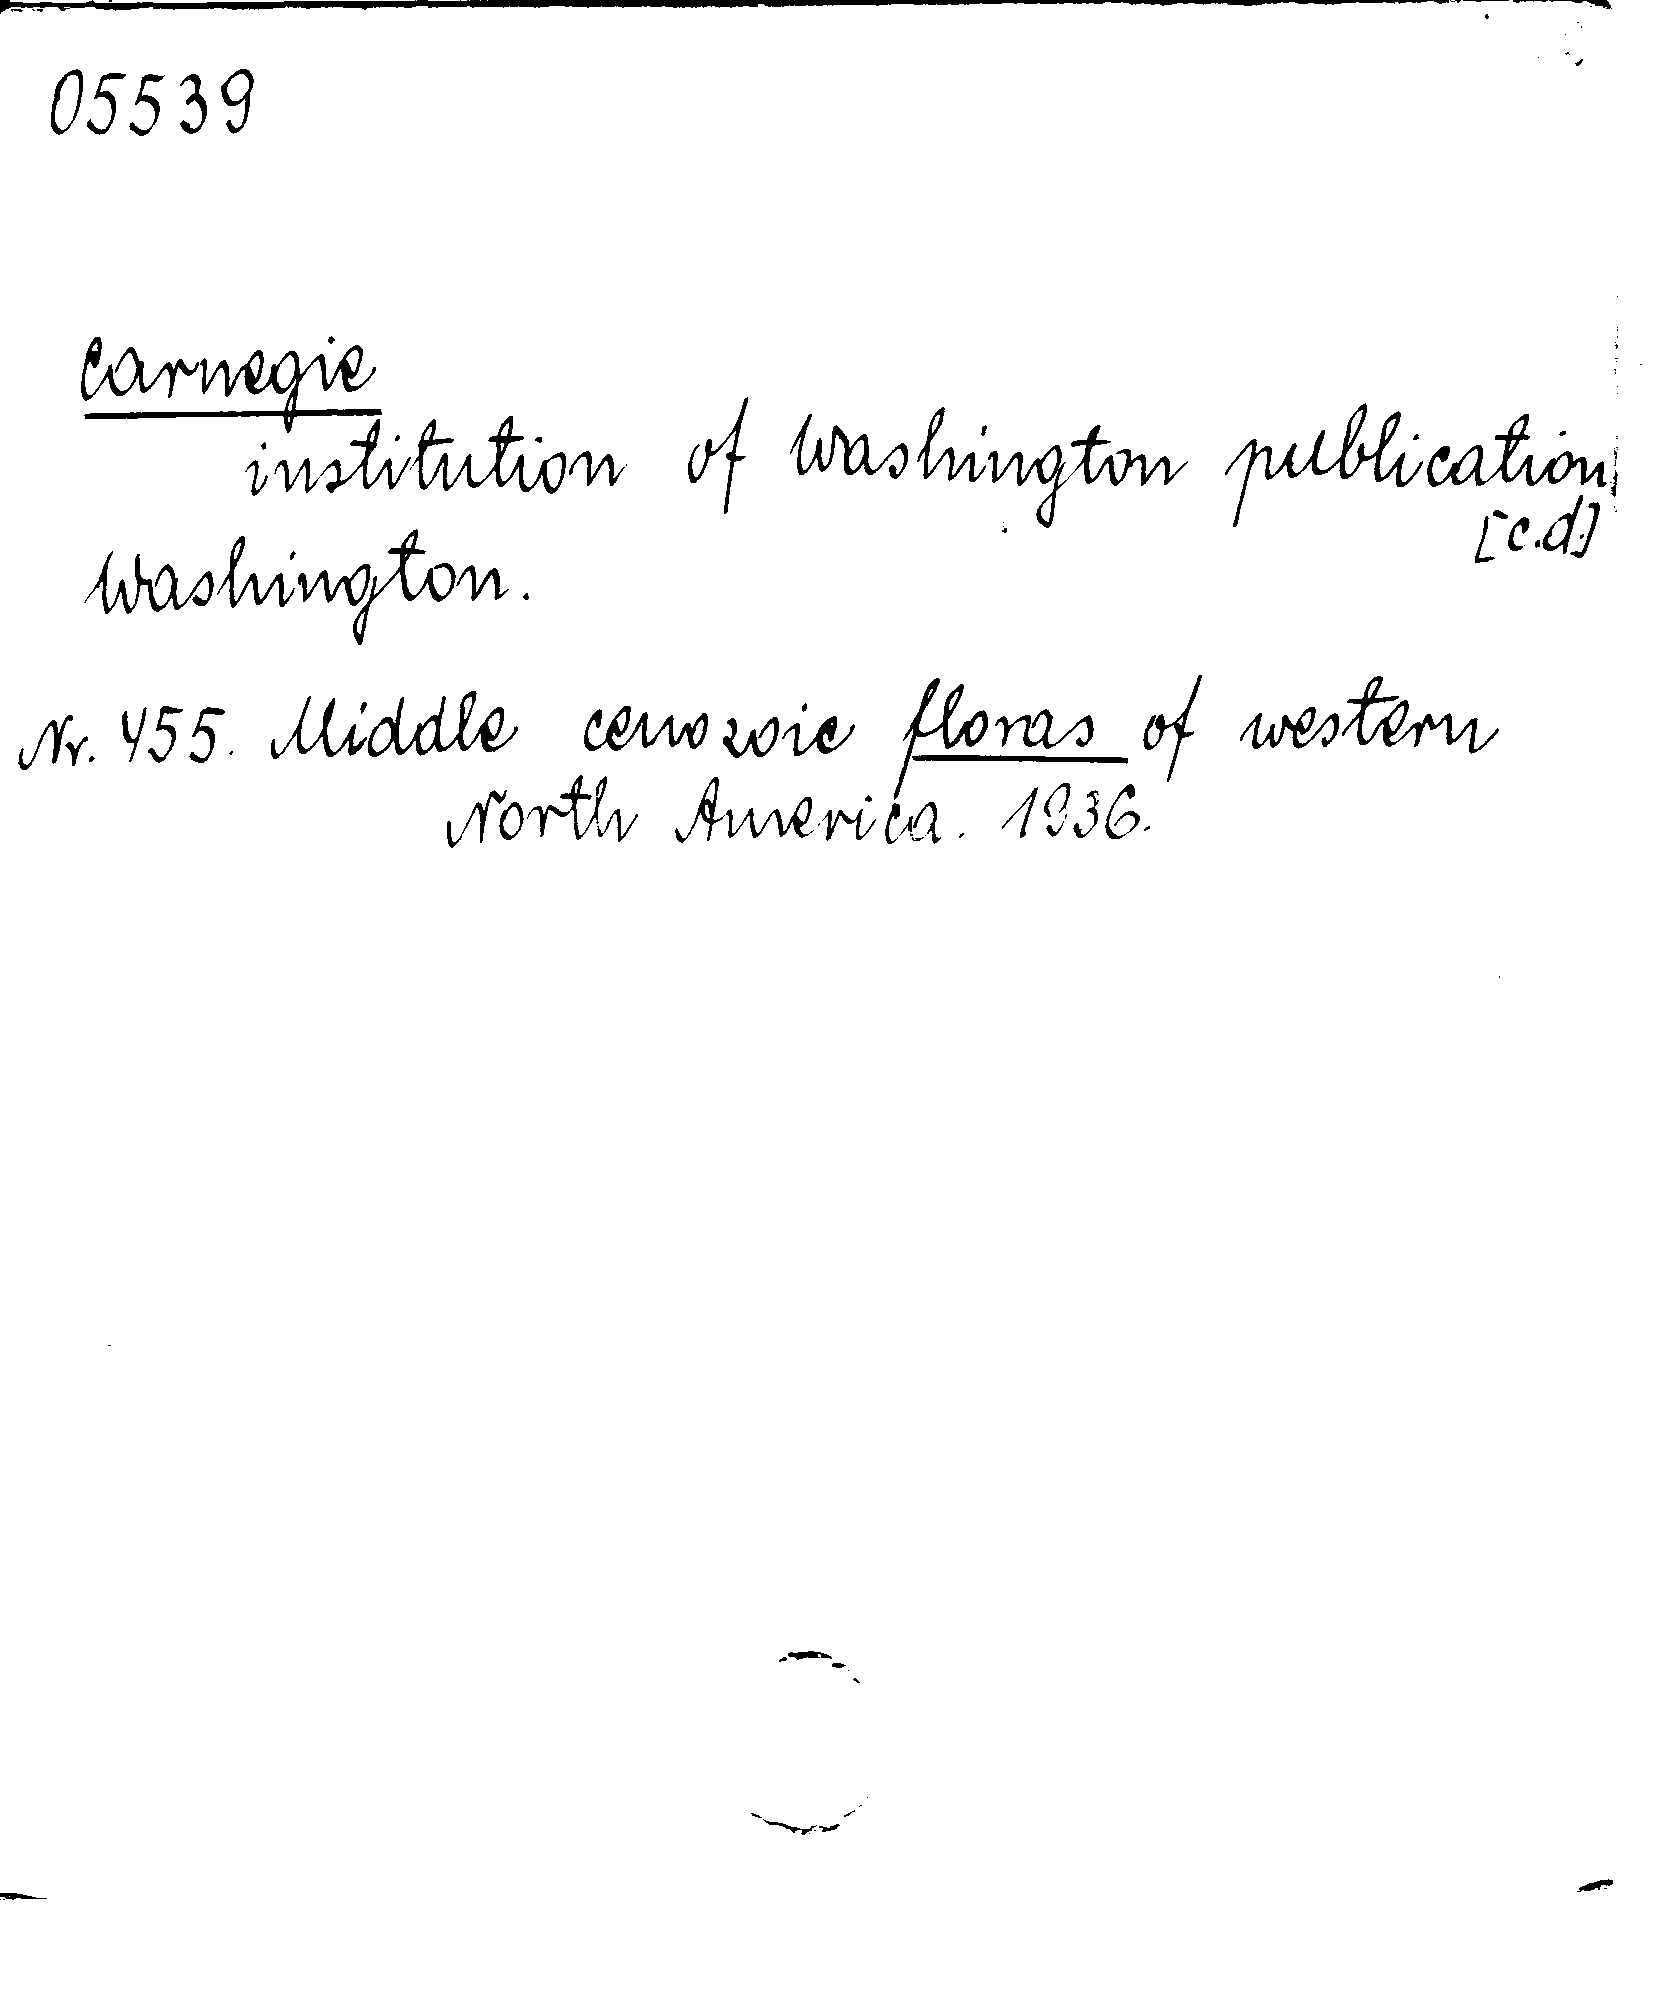 05539
Carnegie
institution of Washington publication
[c.d.]
Washington.
Nr. 455. Middle cenozoic floras of western
North America. 1936.